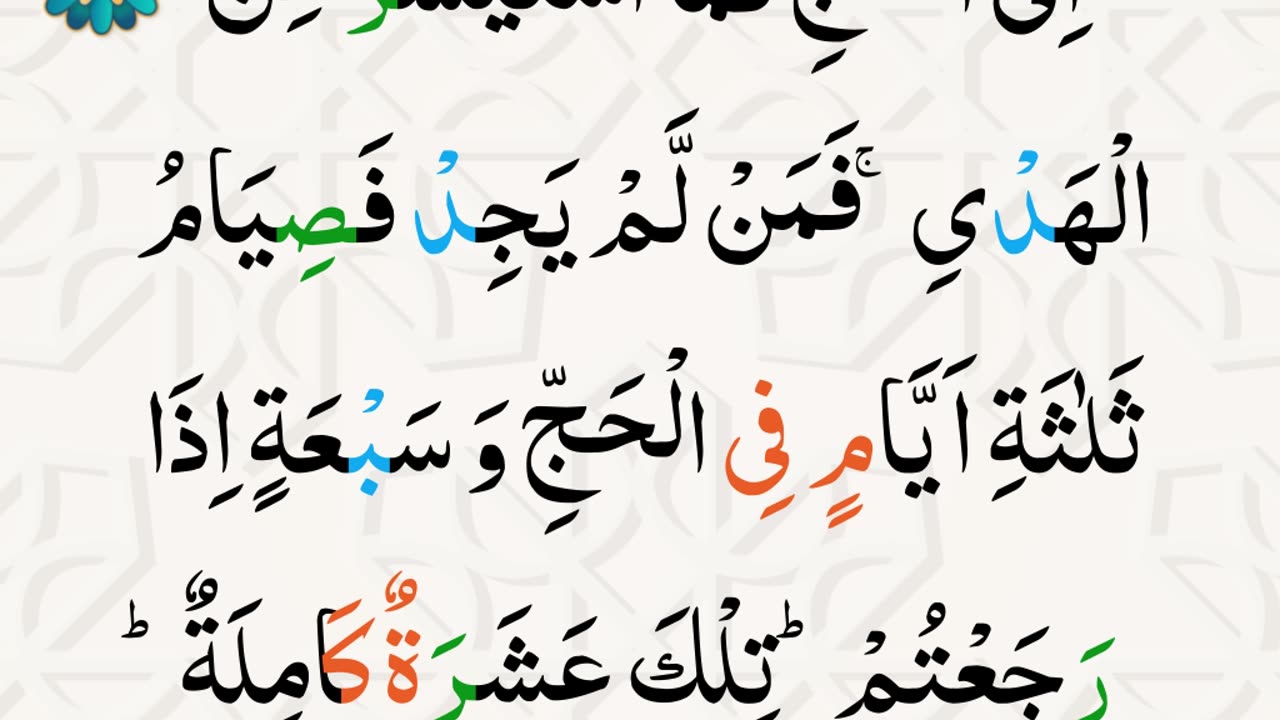 الْهَدْيِ ۚ فَمَنْ لَّمْ يَجِدْ فَصِيَامُ
ثَلٰثَةِ اَيَّامٍ فِي الْحَجِّ وَ سَبْعَةٍ اِذَا
رَجَعْتُمْ ؕ تِلْكَ عَشَرَةٌ كَامِلَةٌ ؕ